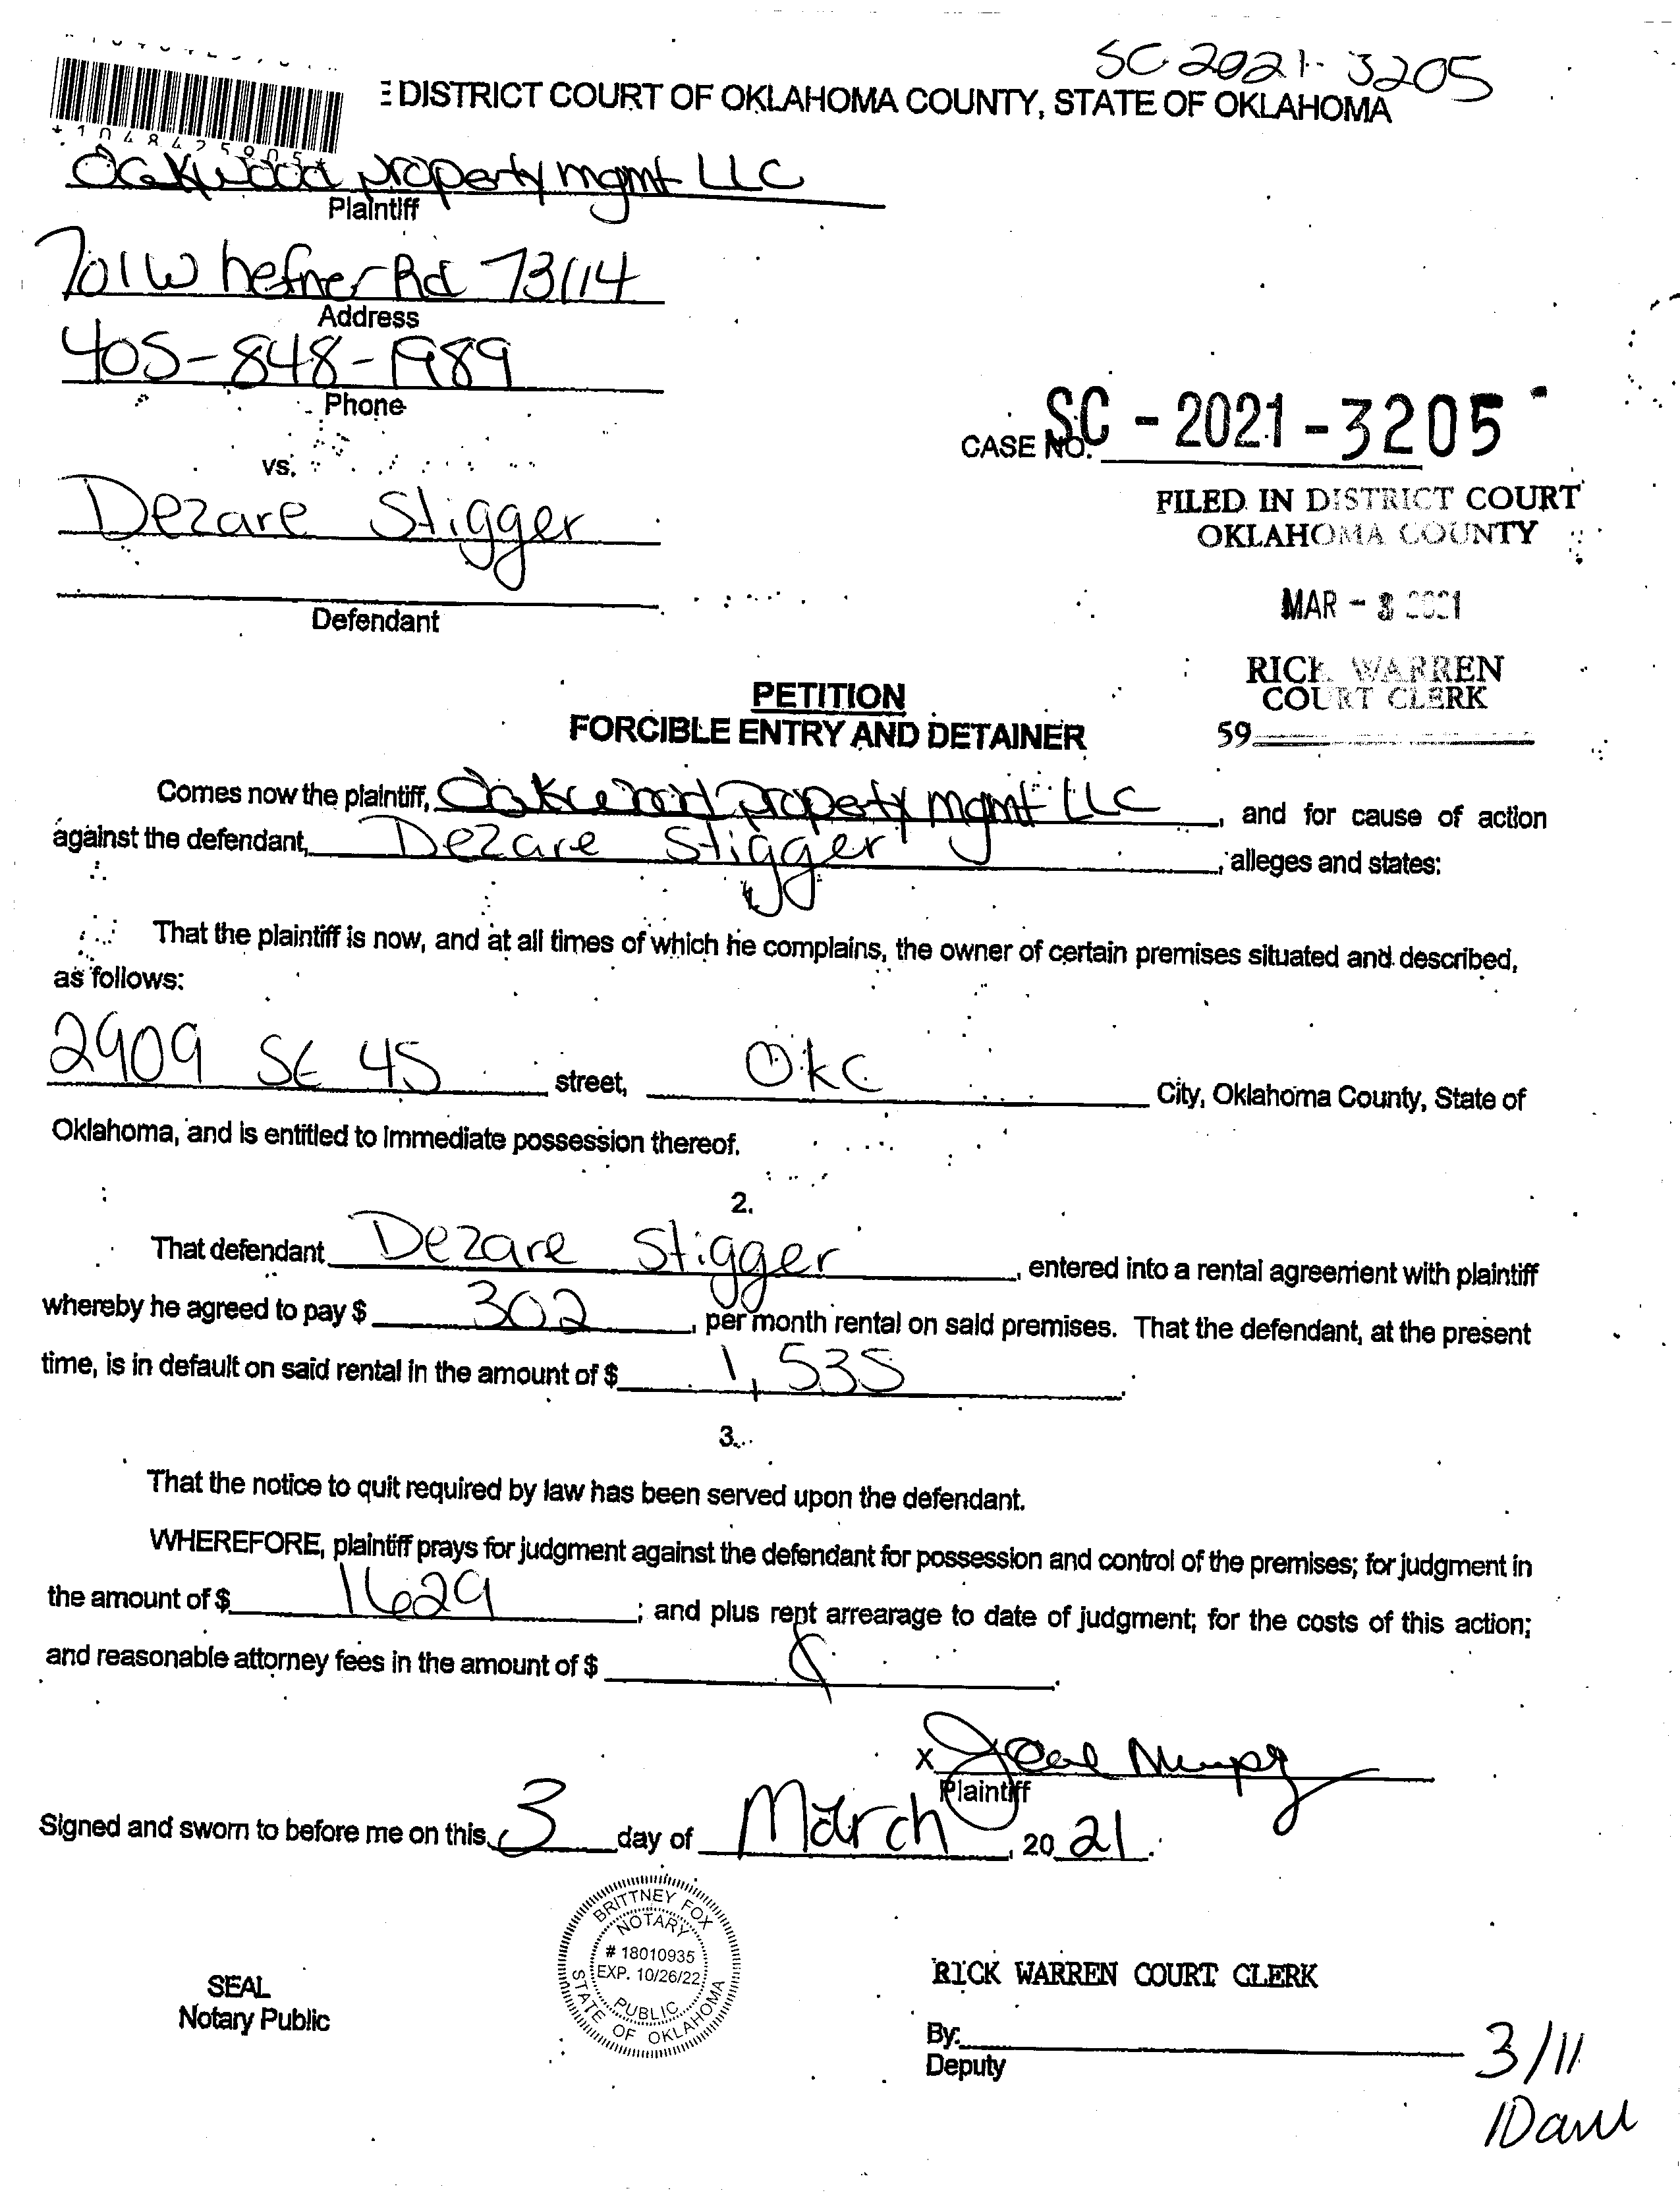 SC 2021-3205
*1048425905*
E DISTRICT COURT OF OKLAHOMA COUNTY, STATE OF OKLAHOMA
Oakwood property mgmt LLC
Plaintiff
701 W hefner Rd 73114
Address
405-848-1989
Phone
CASE NO. SC-2021-3205
vs.
Dezare Stigger
Defendant
FILED IN DISTRICT COURT
OKLAHOMA COUNTY
MAR - 2021
RICK WARREN
COURT CLERK
59
PETITION
FORCIBLE ENTRY AND DETAINER
Comes now the plaintiff, Oakwood property mgmt LLC, and for cause of action
against the defendant, Dezare Stigger, alleges and states:
That the plaintiff is now, and at all times of which he complains, the owner of certain premises situated and described,
as follows:
2909 SE 45 street, Okc City, Oklahoma County, State of
Oklahoma, and is entitled to immediate possession thereof.
2.
That defendant Dezare Stigger, entered into a rental agreement with plaintiff
whereby he agreed to pay $ 302, per month rental on said premises. That the defendant, at the present
time, is in default on said rental in the amount of $ 1,535.
3.
That the notice to quit required by law has been served upon the defendant.
WHEREFORE, plaintiff prays for judgment against the defendant for possession and control of the premises; for judgment in
the amount of $ 1629; and plus rent arrearage to date of judgment; for the costs of this action;
and reasonable attorney fees in the amount of $
x
Plaintiff
Signed and sworn to before me on this 3 day of March, 2021.
BRITTNEY FOX
NOTARY
# 18010935
EXP. 10/26/22
PUBLIC
STATE OF OKLAHOMA
SEAL
Notary Public
RICK WARREN COURT CLERK
By:
Deputy
3/11